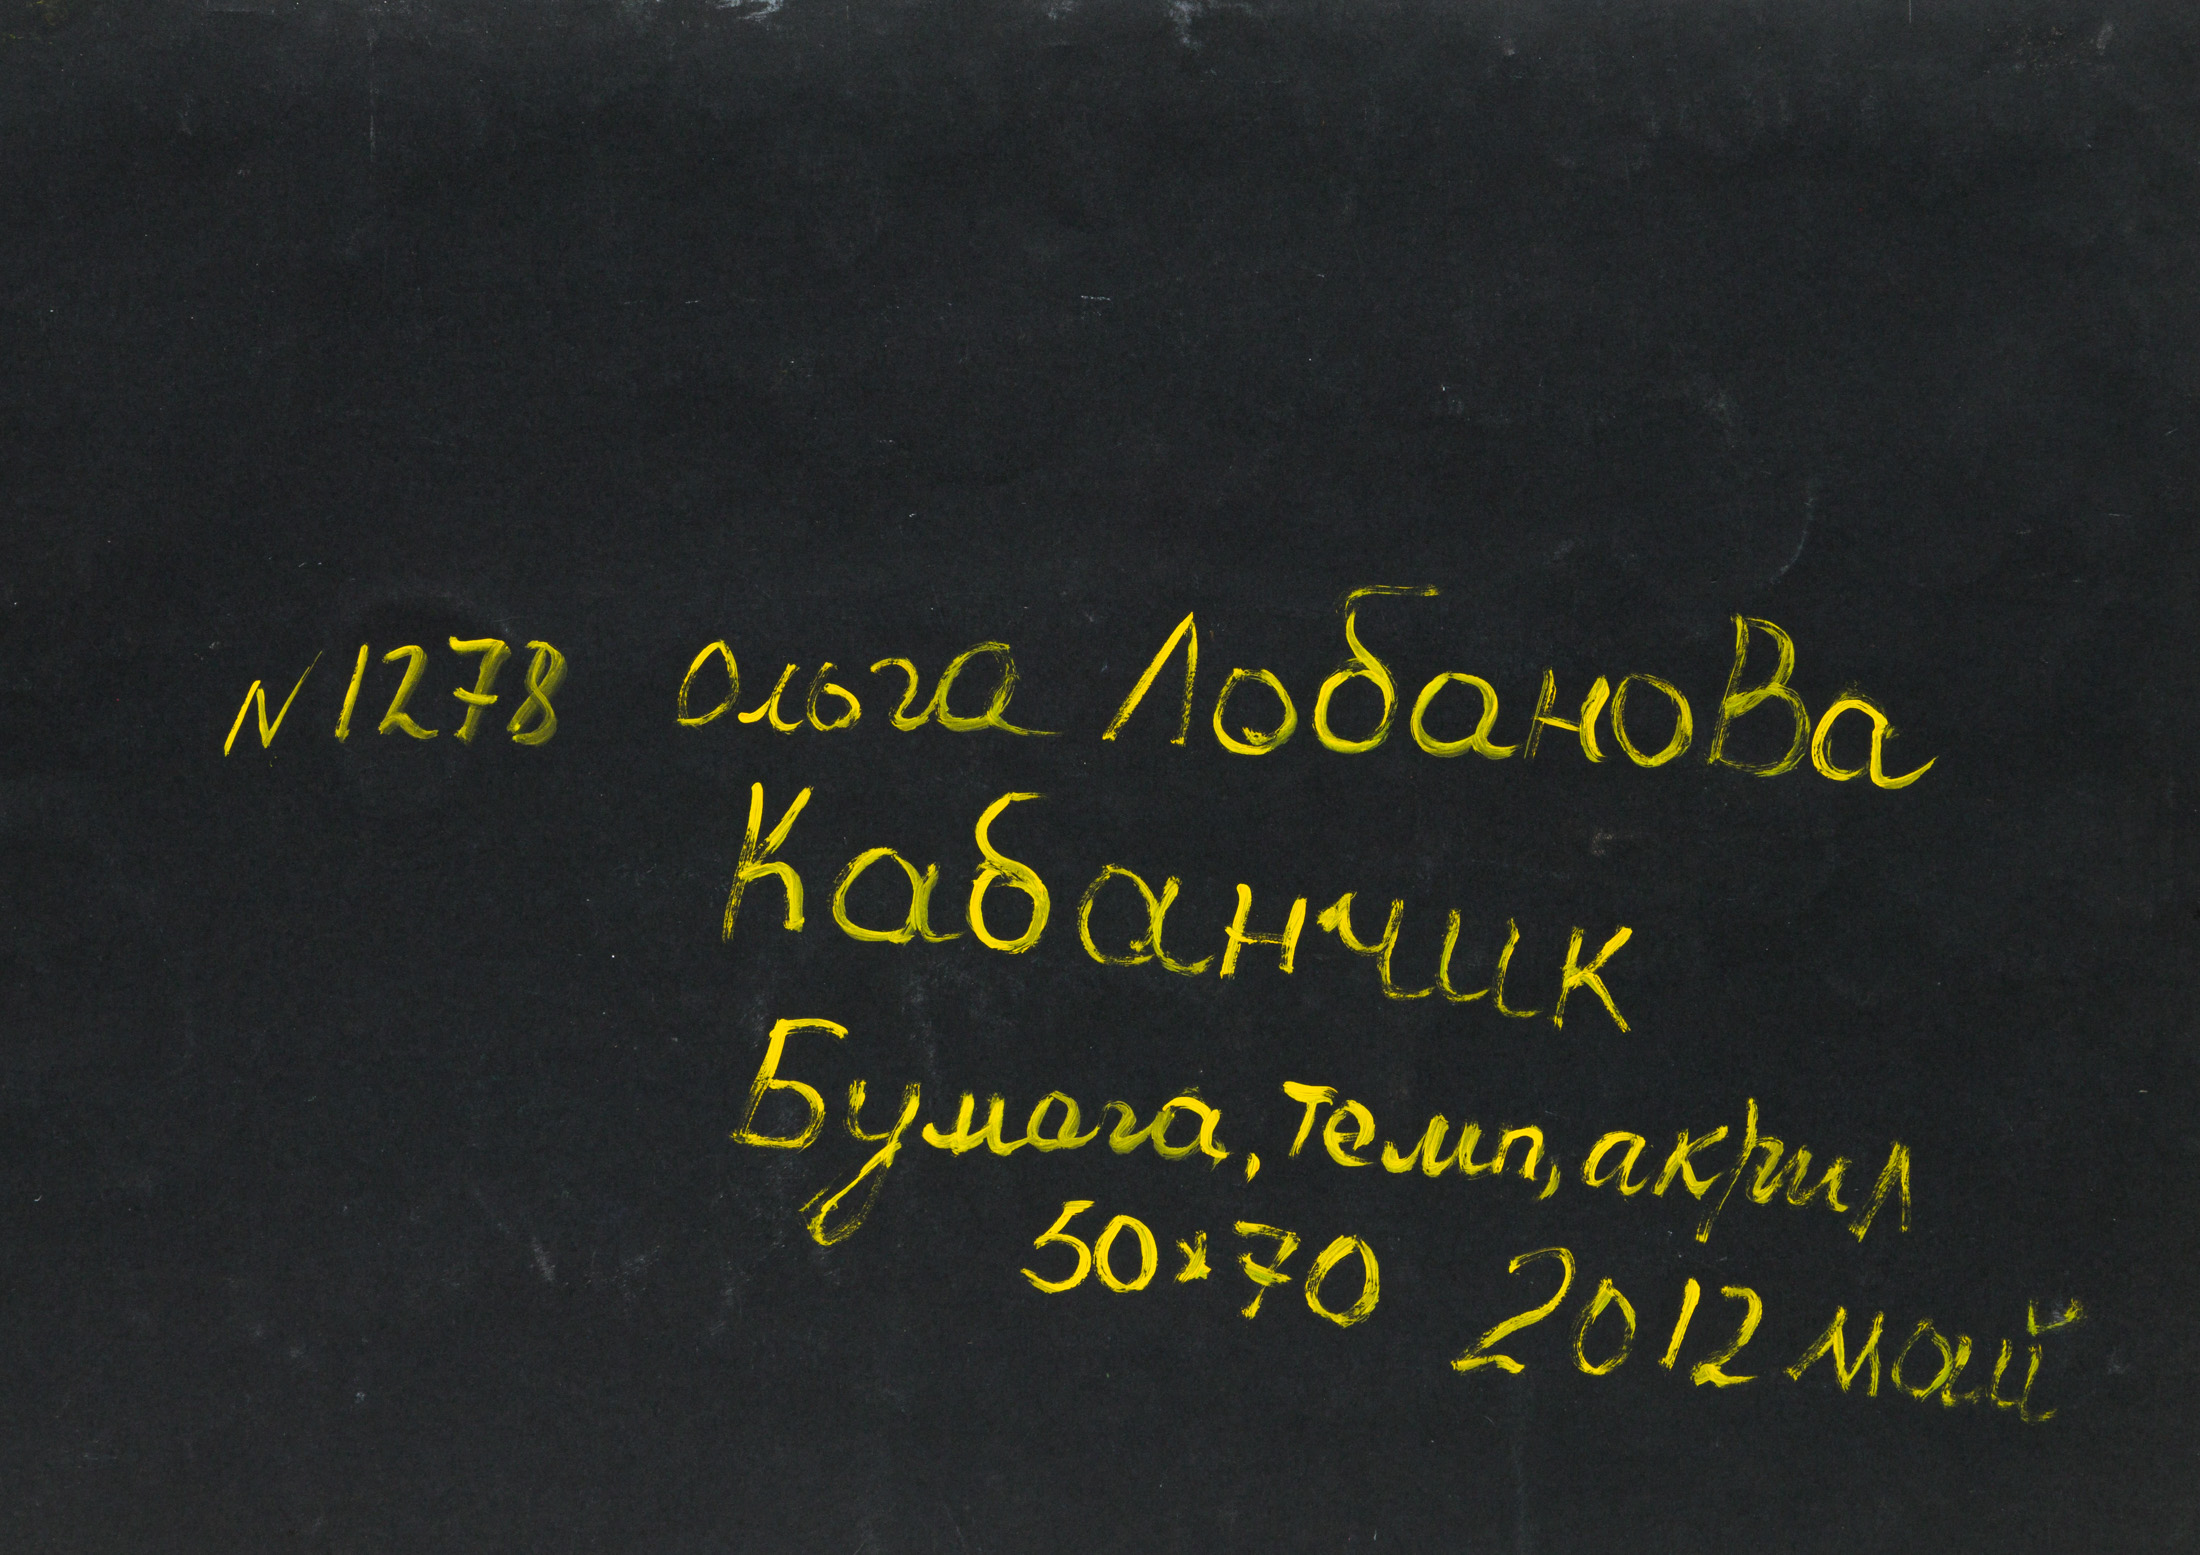 N 1278 Ольга Лобанова
Кабанчик
Бумага, темп, акрил
50×70 2012 май